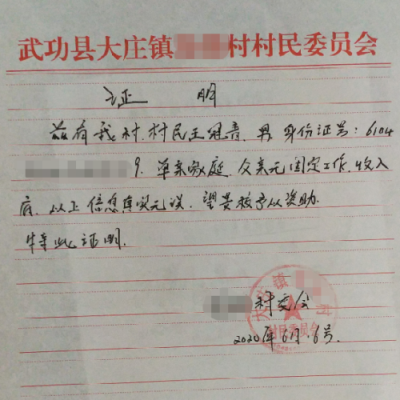 武功县大庄镇村村民委员会
证 明
兹有我村村民王冠音,男,身份证号:6104
9.单亲家庭,父亲无固定工作,收入
底,以上信息真实无误,望贵校予以资助.
特此证明.
村委会
2020年6月.6号.